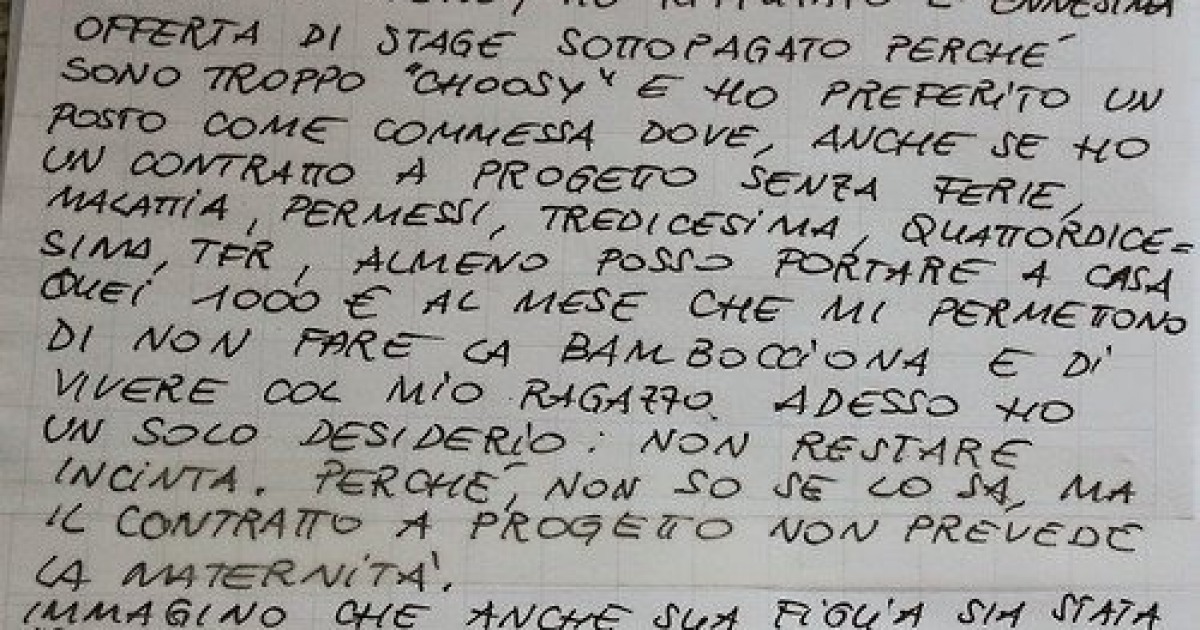 ENNESIMA
OFFERTA DI STAGE SOTTOPAGATO PERCHÉ
SONO TROPPO "CHOOSY" E HO PREFERITO UN
POSTO COME COMMESSA DOVE, ANCHE SE HO
UN CONTRATTO A PROGETTO SENZA FERIE,
MALATTIA, PERMESSI, TREDICESIMA, QUATTORDICE=
SIMA, TFR, ALMENO POSSO PORTARE A CASA
QUEI 1000 € AL MESE CHE MI PERMETTONO
DI NON FARE LA BAMBOCCIONA E DI
VIVERE COL MIO RAGAZZO. ADESSO HO
UN SOLO DESIDERIO: NON RESTARE
INCINTA. PERCHÉ, NON SO SE LO SA, MA
IL CONTRATTO A PROGETTO NON PREVEDE
LA MATERNITÀ.
IMMAGINO CHE ANCHE SUA FIGLIA SIA STATA